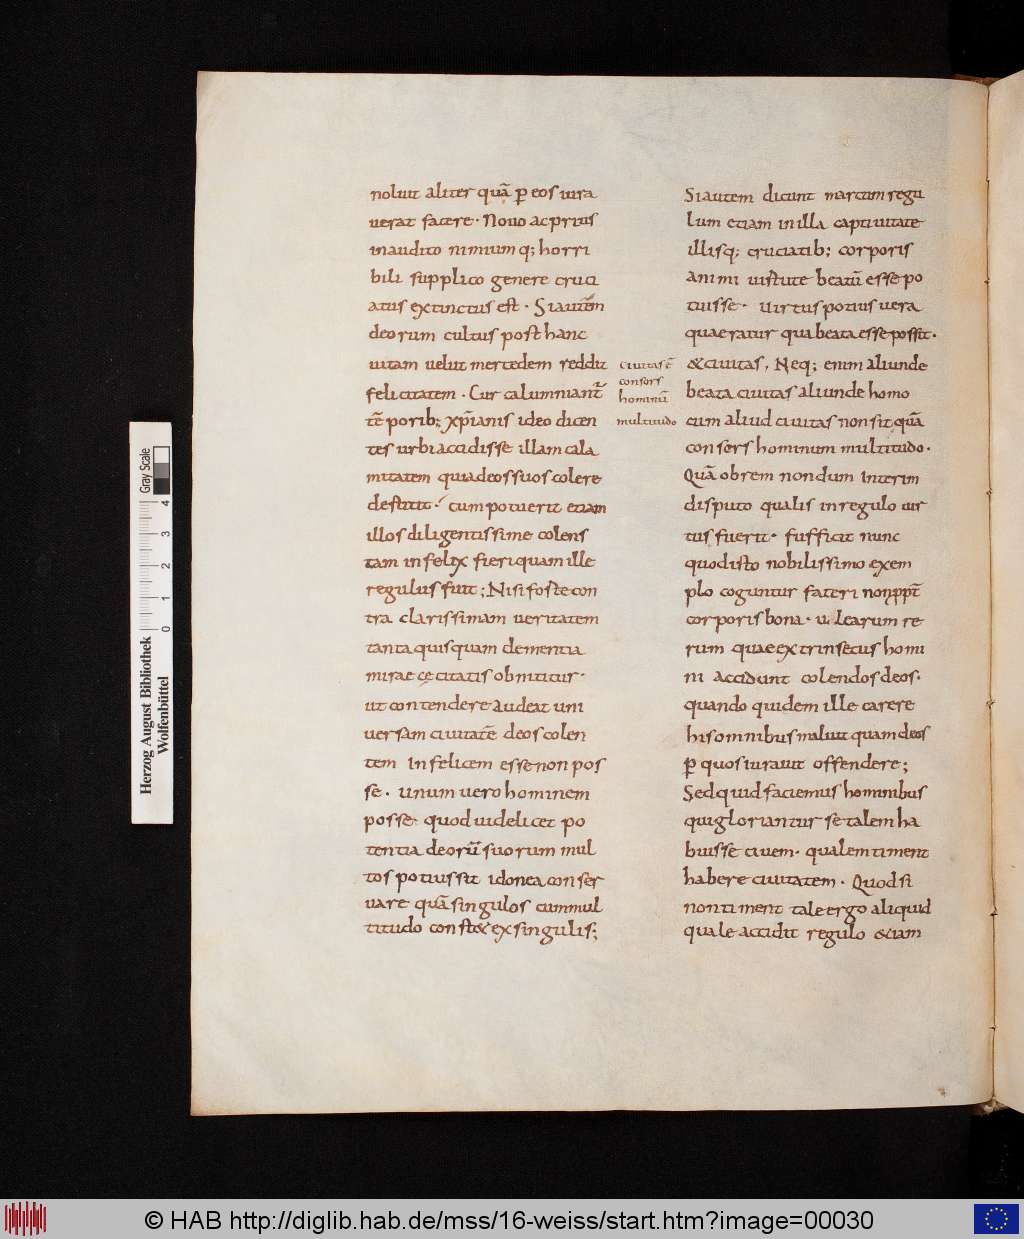 noluit aliter quā ꝑ eos iura
uerat facere · Nouo ac prius
inaudito nimiumq; horri
bili supplico genere cruci
atus extinctus est · Si autem
deorum cultus post hanc
uitam uelut mercedem reddit
felicitatem · Cur calumniant̄
tē porib; xp̄ianis ideo dicen
tes urbi accidisse illam cala
mitatem quia deos suos colere
destitit · cum potuerit etiam
illos diligentissime colens
tam infelix fieri quam ille
regulus fuit ; Nisi foste con
tra clarissimam ueritatem
tanta quisquam dementia
mirae cęcitatis obnititur ·
ut contendere audeat uni
uersam ciuitatē deos colen
tem infelicem esse non pos
se · unum uero hominem
posse · quod uidelicet po
tentia deorū suorum mul
tos potius sit idonea conser
uare quā singulos cum mul
titudo const& ex singulis;
ciuitas ē
consors
hominū
multitudo
Si autem dicunt marcum regu
lum etiam in illa captiuitate
illisq; cruciatib; corporis
animi uistute beatū esse po
tuisse · uirtus potius uera
quaeratur qua beata esse possit ·
& ciuitas , Neq; enim aliunde
beata ciuitas aliunde homo
cum aliud ciuitas non sit quā
consors hominum multitudo ·
Quā obrem nondum interim
disputo qualis in regulo uir
tus fuerit · sufficit nunc
quod isto nobilissimo exem
plo coguntur fateri non ppt̄
corporis bona · u learum re
rum quae extrinsecus homi
ni accidunt colendos deos ·
quando quidem ille carere
his omnibus maluit quam deos
ꝑ quos iurauit offendere ;
Sed quid faciemus hominibus
qui gloriantur se talem ha
buisse ciuem · qualem timent
habere ciuitatem · Quod si
non timent tale ergo aliquid
quale accidit regulo &iam
Herzog August Bibliothek
Wolfenbüttel
0 1 2 3 4 Gray Scale
© HAB http://diglib.hab.de/mss/16-weiss/start.htm?image=00030